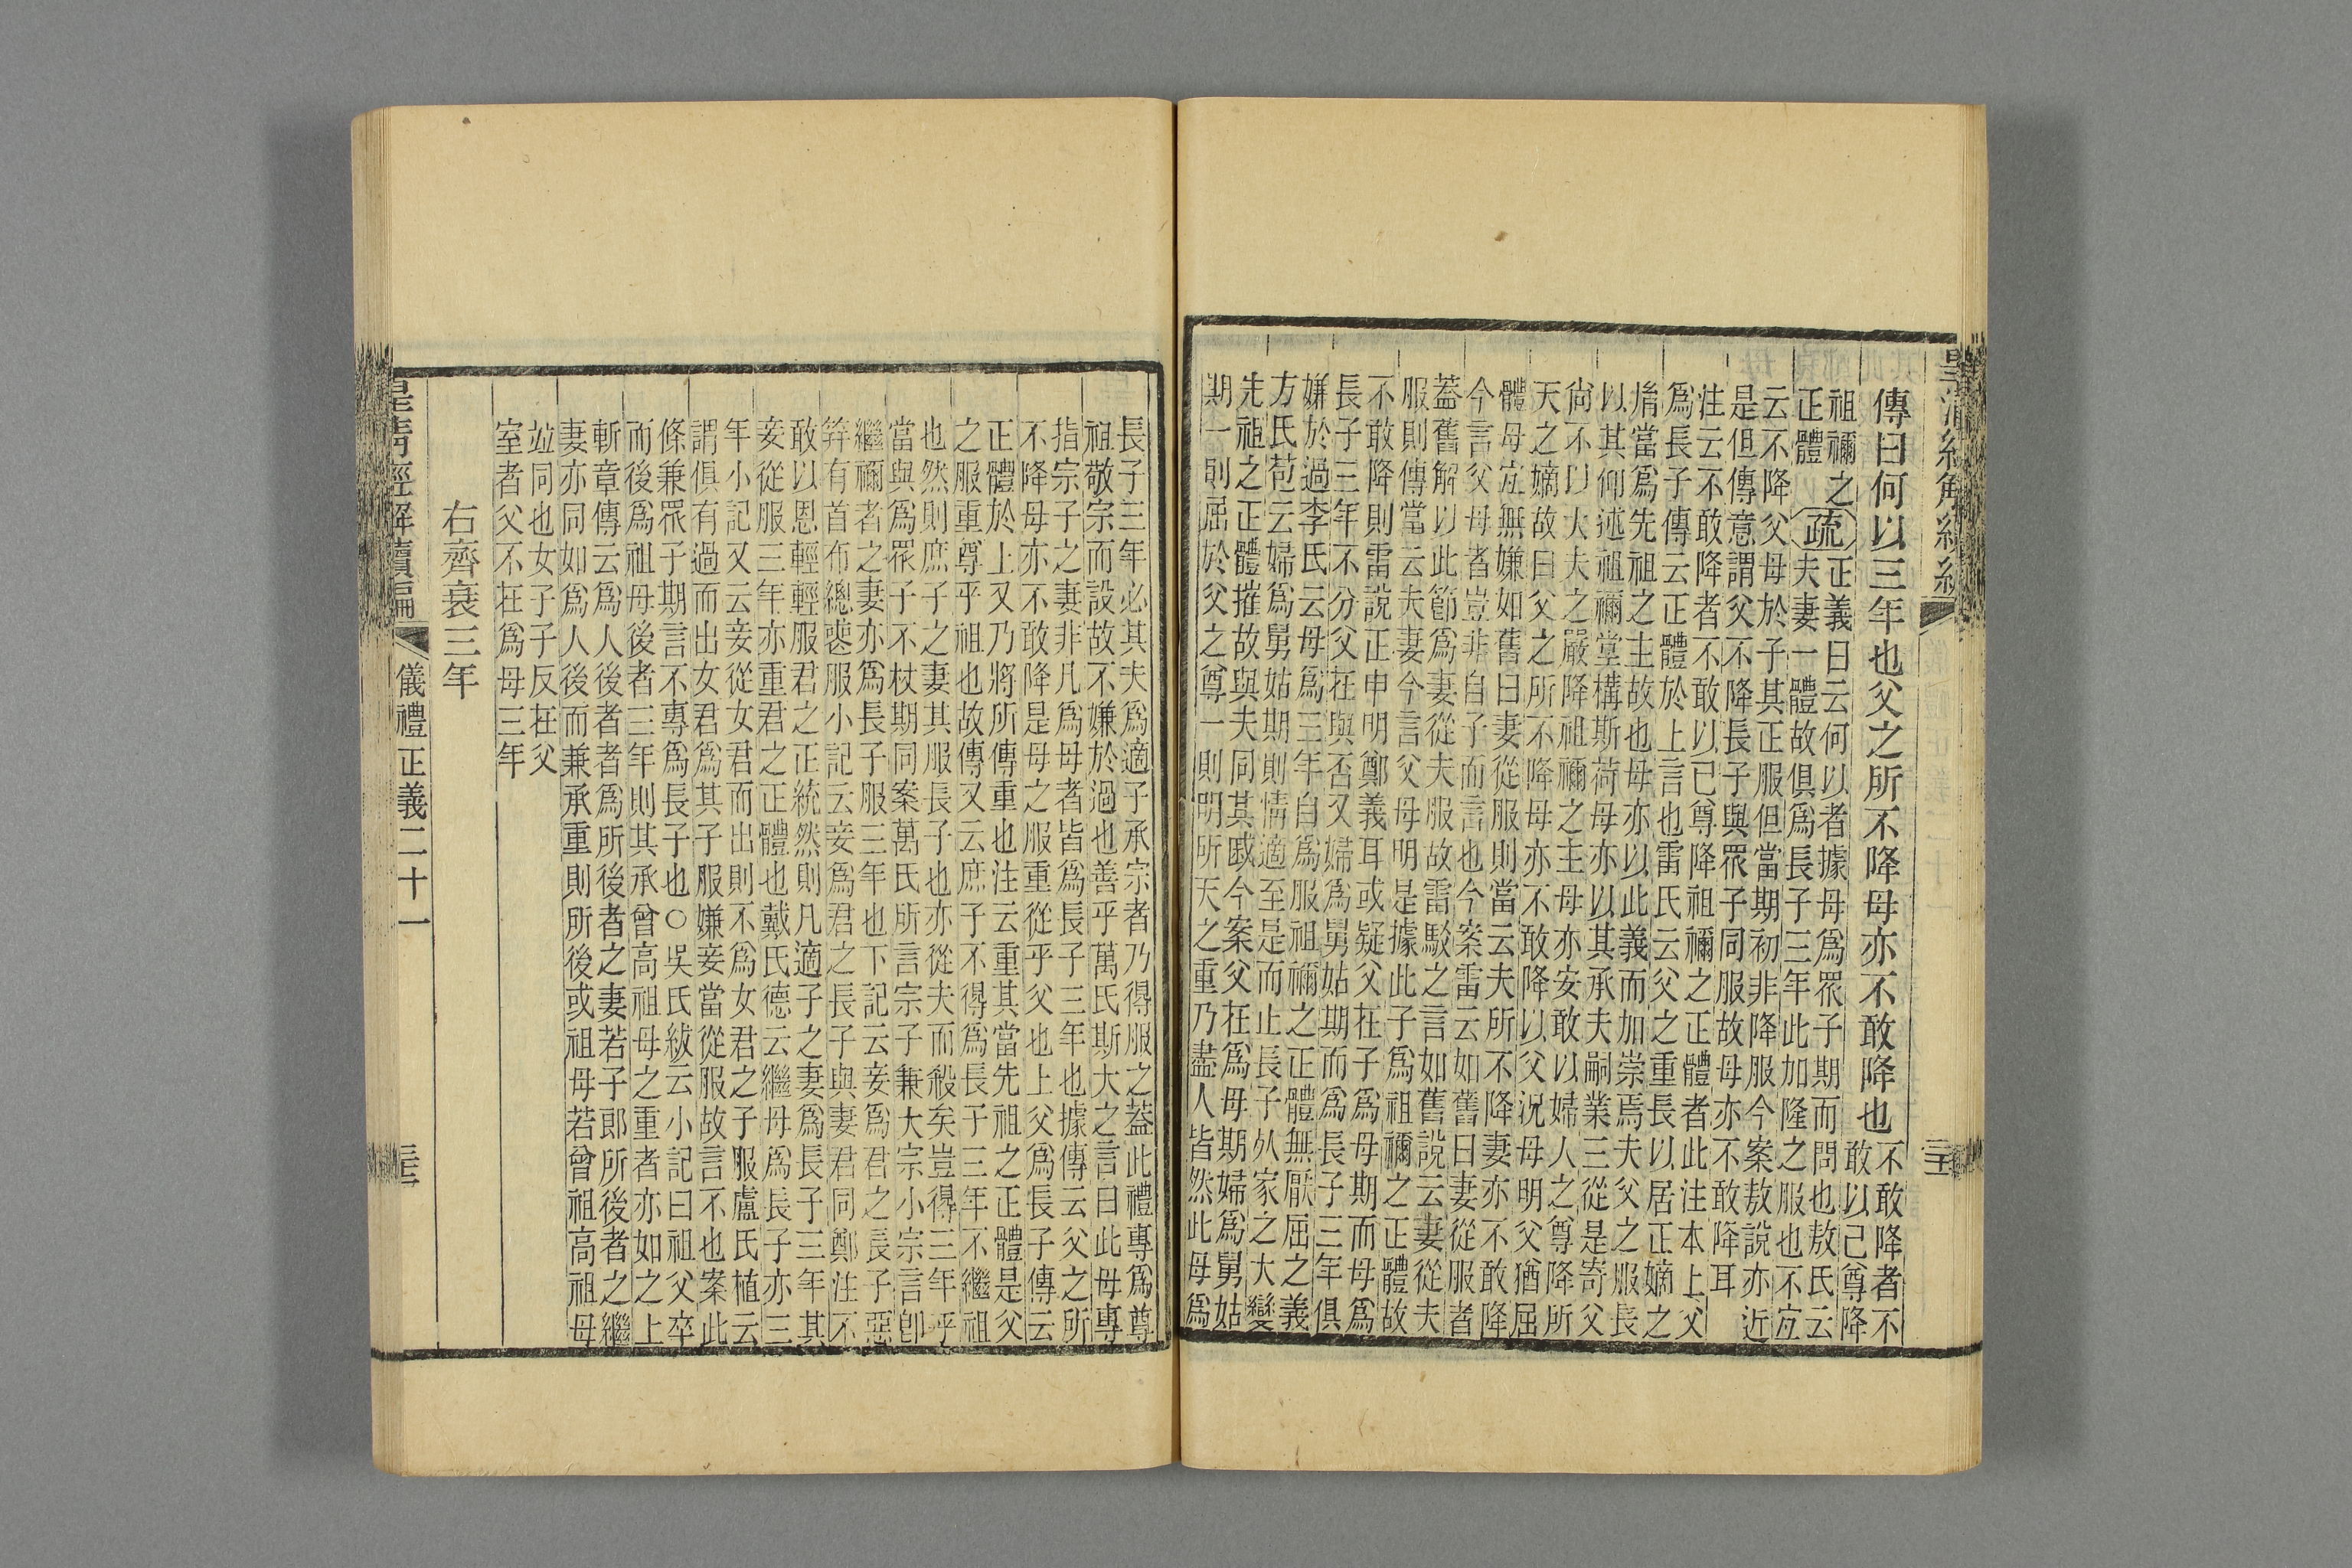 傳曰何以三年也父之所不降母亦不敢降也不敢降者不
敢以己尊降
祖禰之
正體
疏
正義曰云何以者據母爲眾子期而問也敖氏云
夫妻一體故俱爲長子三年此加隆之服也不宐
云不降父母於子其正服但當期初非降服今案敖說亦近
是但傳意謂父不降長子與眾子同服故母亦不敢降耳
注云不敢降者不敢以已尊降祖禰之正體者此注本上父
爲長子傳云正體於上言也雷氏云父之重長以居正嫡之
胤當爲先祖之主故也母亦以此義而加崇焉夫父之服長
以其仰述祖禰堂構斯荷母亦以其承夫嗣業三從是寄父
尙不以大夫之嚴降祖禰之主母亦安敢以婦人之尊降所
天之嫡故曰父之所不降母亦不敢降以父況母明父猶屈
體母宐無嫌如舊曰妻從服則當云夫所不降妻亦不敢降
今言父母者豈非自子而言也今案雷云如舊曰妻從服者
葢舊解以此節爲妻從夫服故雷駁之言如舊說云妻從夫
服則傳當云夫妻今言父母明是據此子爲祖禰之正體故
不敢降則雷說正申明鄭義耳或疑父在子爲母期而母爲
長子三年不分父在與否又婦爲舅姑期而爲長子三年俱
嫌於過李氏云母爲三年自爲服祖禰之正體無厭屈之義
方氏苞云婦爲舅姑期則情適至是而止長子死家之大變
先祖之正體摧故與夫同其戚今案父在爲母期婦爲舅姑
期一則屈於父之尊一則明所天之重乃盡人皆然此母爲
長子三年必其夫爲適子承宗者乃得服之葢此禮專爲尊
祖敬宗而設故不嫌於過也善乎萬氏斯大之言曰此母專
指宗子之妻非凡爲母者皆爲長子三年也據傳云父之所
不降母亦不敢降是母之服重從乎父也上父爲長子傳云
正體於上又乃將所傳重也注云重其當先祖之正體是父
之服重尊乎祖也故傳又云庶子不得爲長子三年不繼祖
也然則庶子之妻其服長子也亦從夫而殺矣豈得三年乎
當與爲眾子不杖期同案萬氏所言宗子兼大宗小宗言卽
繼禰者之妻亦爲長子服三年也下記云妾爲君之長子惡
笄有首布總䘮服小記云妾爲君之長子與妻君同鄭注不
敢以恩輕輕服君之正統然則凡適子之妻爲長子三年其
妾從服三年亦重君之正體也戴氏德云繼母爲長子亦三
年小記又云妾從女君而出則不爲女君之子服盧氏植云
謂俱有過而出女君爲其子服嫌妾當從服故言不也案此
條兼眾子期言不專爲長子也○吳氏紱云小記曰祖父卒
而後爲祖母後者三年則其承曾高祖母之重者亦如之上
斬章傳云爲人後者者爲所後者之妻若子郎所後者之繼
妻亦同如爲人後而兼承重則所後或祖母若曾祖高祖母
竝同也女子子反在父
室者父不在爲母三年
右齊衰三年
皇清經解續編
儀禮正義二十一